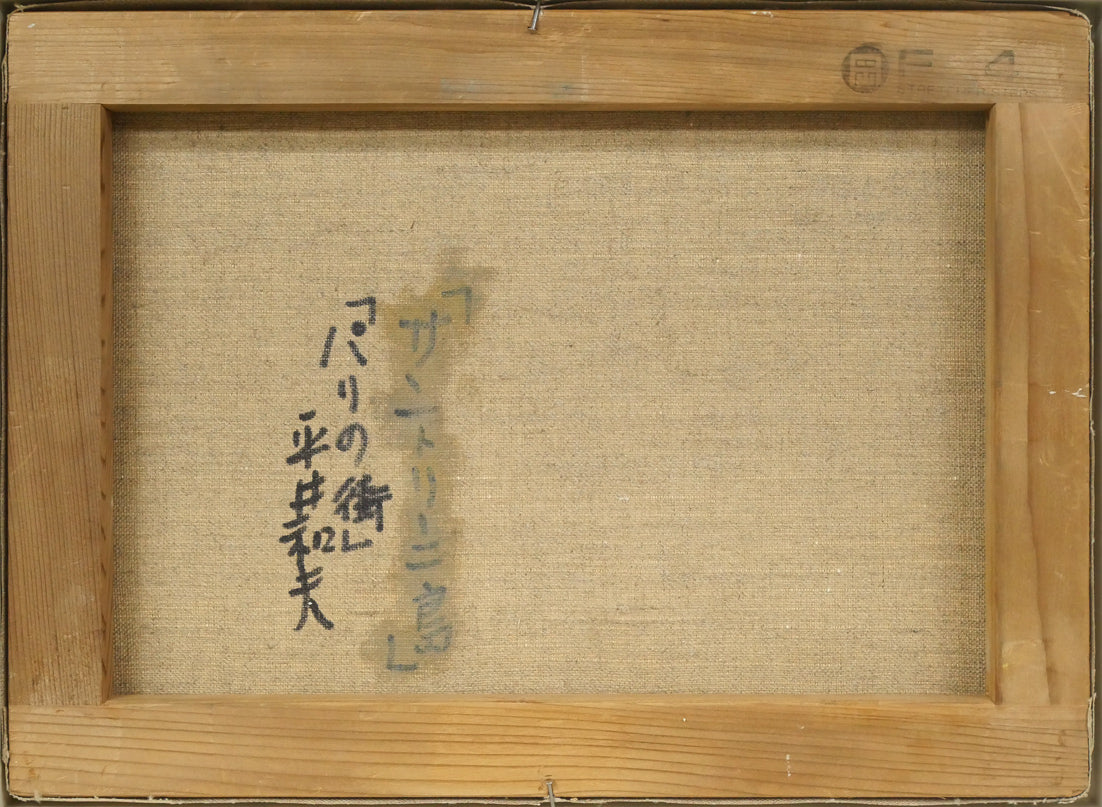 F 4
STRETCHER STRIPS
「サントリーニ島」
「パリの街」
平井和夫